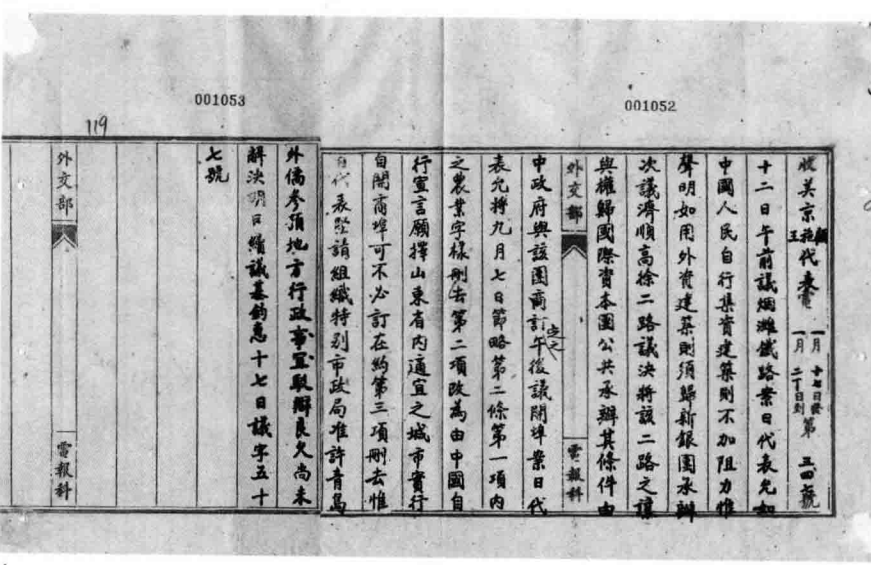 001053
001052
119
收美京顧施王代表電 一月十七日發 一月二十日到 第三四號
十二日午前議烟濰鐵路案日代表允如
中國人民自行集資建築則不加阻力惟
聲明如用外資建築則須歸新銀團承辦
次議濟順高徐二路議決將該二路之讓
與權歸國際資本團公共承辦其條件由
外交部 電報科
中政府與該團商訂之午後議開埠案日代
表允將九月七日節略第二條第一項內
之農業字樣刪去第二項改為由中國自
行宣言願擇山東省內適宜之城市實行
自開商埠可不必訂在約第三項刪去惟
日代表堅請組織特別市政局准許青島
外僑參預地方行政事宜取辯良久尚未
解決明日續議基鈞惠十七日議字五十
七號
外交部 電報科